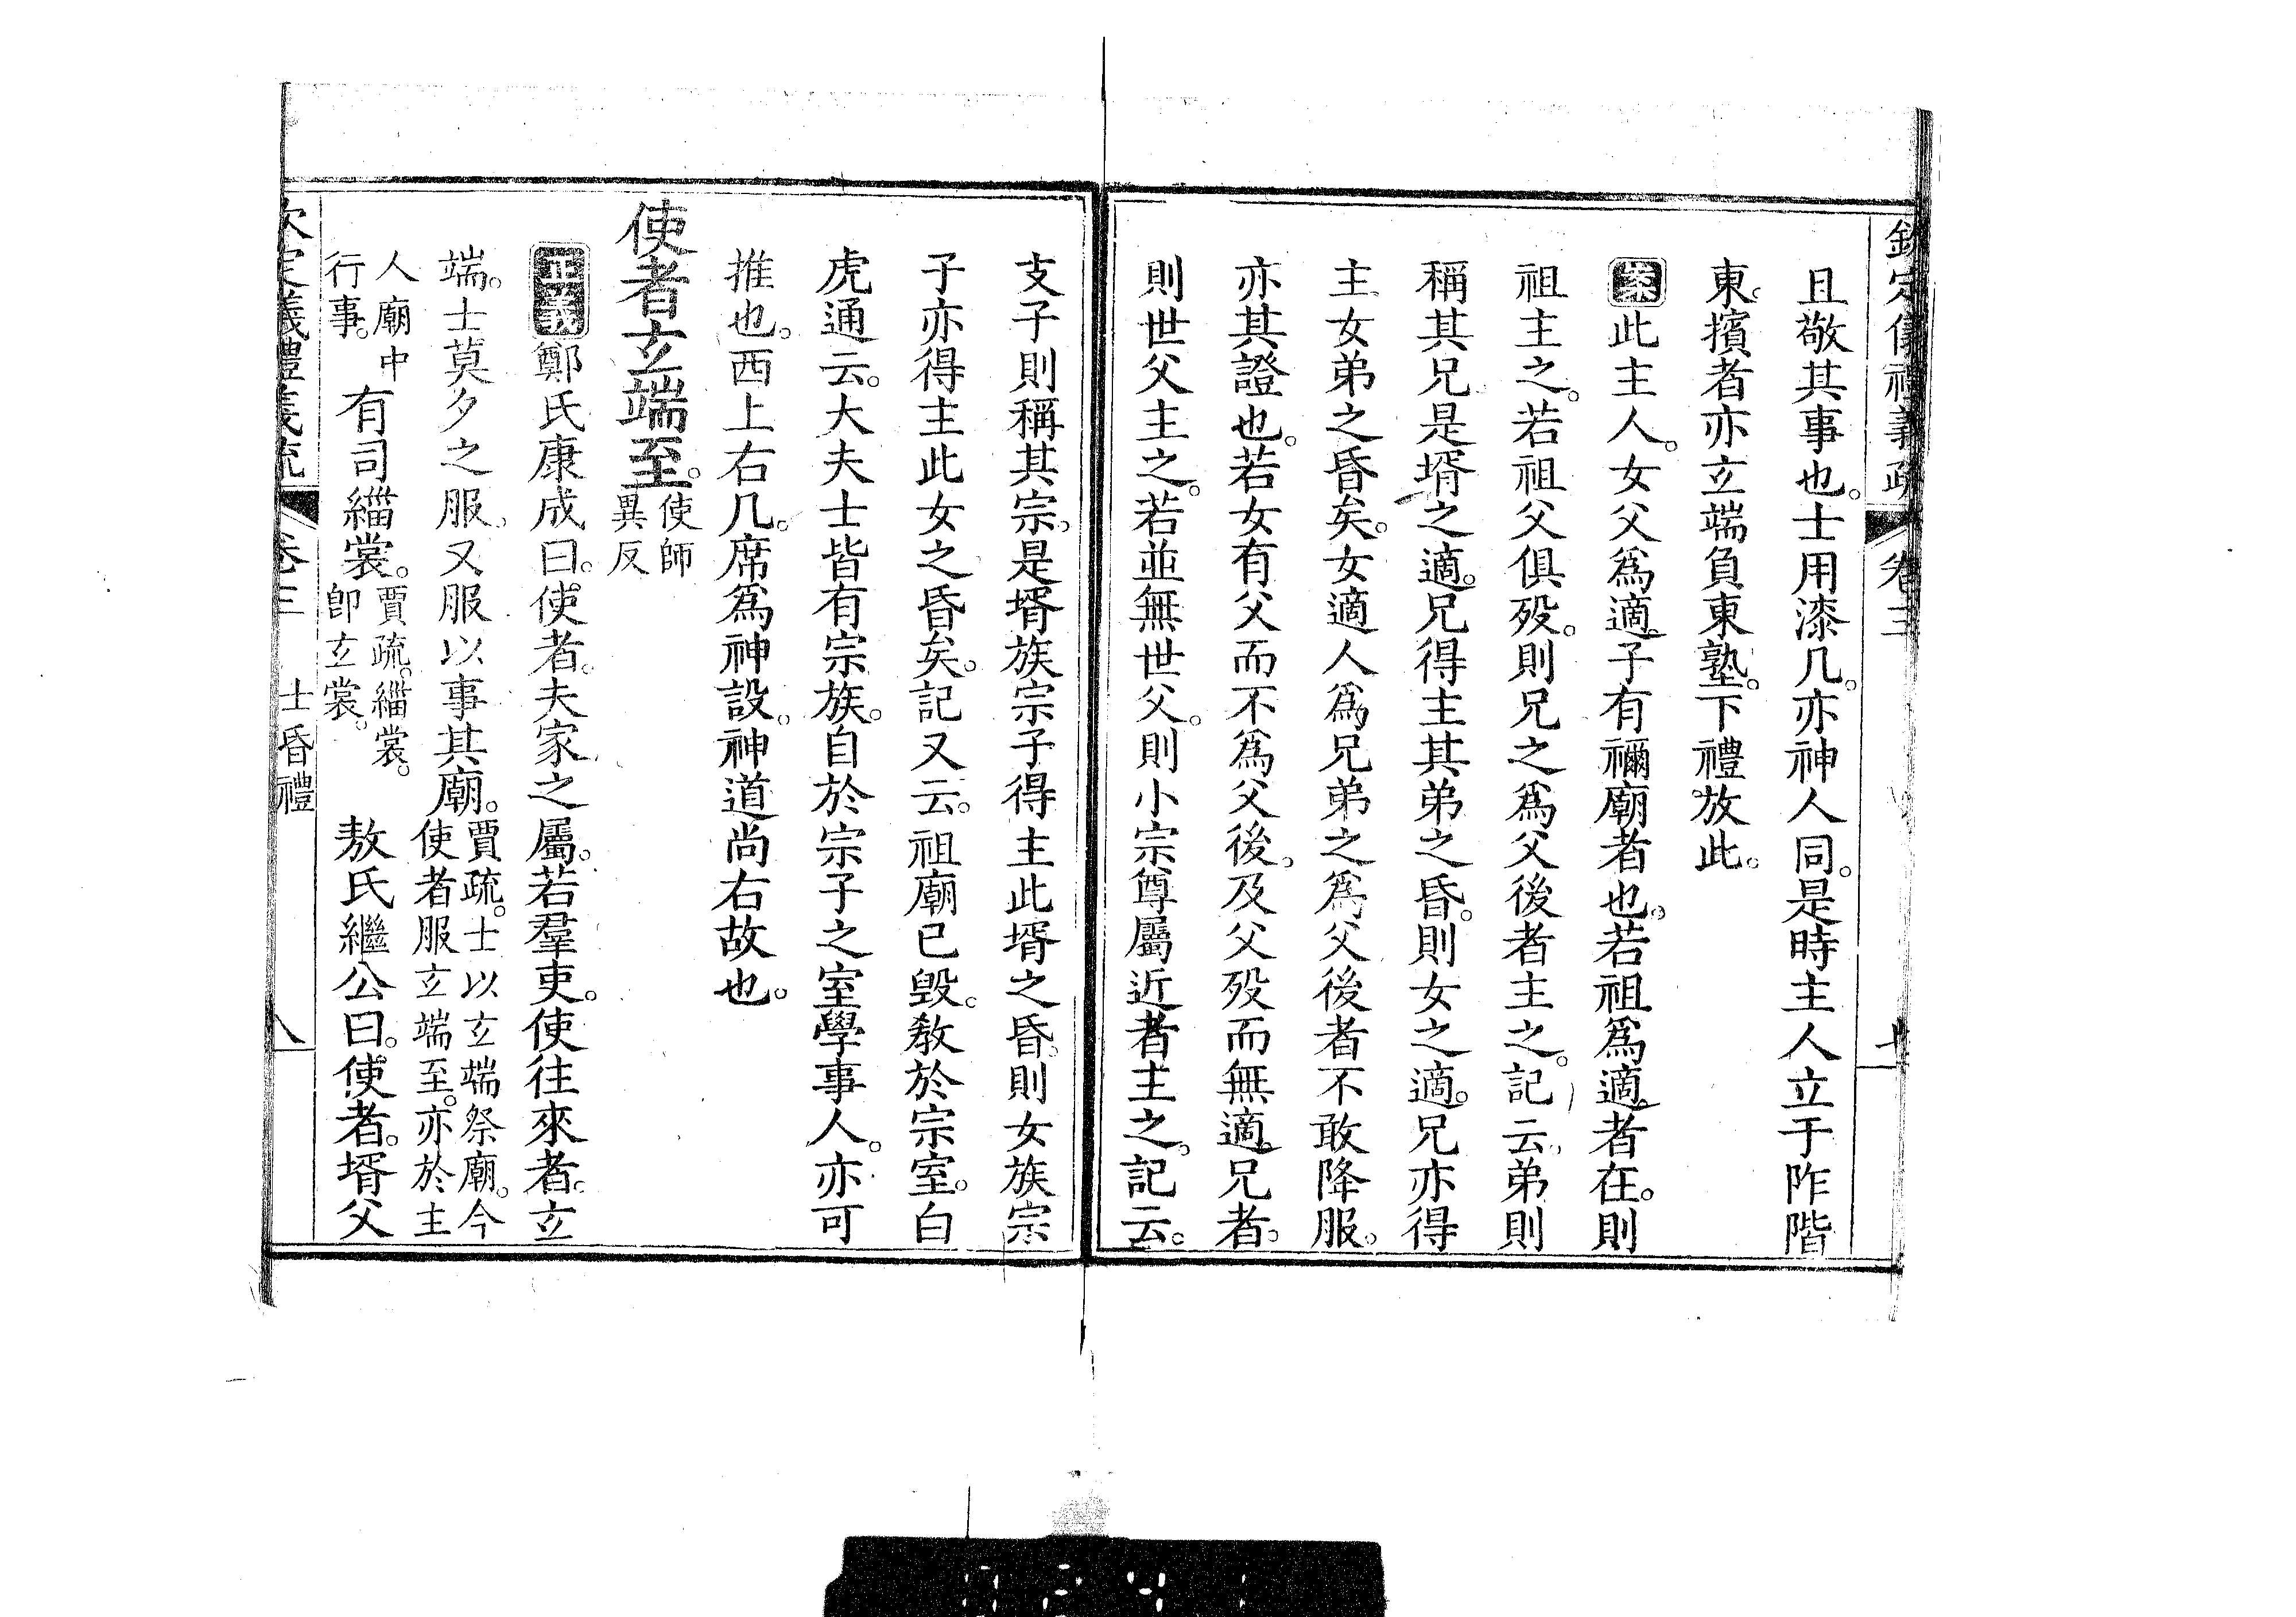 欽定儀禮義疏 卷三 七
且敬其事也。士用漆几。亦神人同。是時主人立于阼階
東。擯者亦玄端負東塾。下禮放此。
案此主人。女父爲適子有禰廟者也。若祖爲適者在。則
祖主之。若祖父俱歿。則兄之爲父後者主之。記云。弟則
稱其兄。是壻之適。兄得主其弟之昏。則女之適。兄亦得
主女弟之昏矣。女適人爲兄弟之爲父後者不敢降服。
亦其證也。若女有父而不爲父後。及父歿而無適。兄者。
則世父主之。若並無世父。則小宗尊屬近者主之。記云。
支子則稱其宗。是壻族宗子得主此壻之昏。則女族宗
子亦得主此女之昏矣。記又云。祖廟已毀。教於宗室。白
虎通云。大夫士皆有宗族。自於宗子之室學事人。亦可
推也。西上右几。席爲神設。神道尚右故也。
使者玄端至。使師
異反
正義鄭氏康成曰。使者。夫家之屬。若羣吏。使往來者。玄
端。士莫夕之服。又服以事其廟。賈疏。士以玄端祭廟。今
使者服玄端至。亦於主
人廟中
行事。有司緇裳。賈疏。緇裳。
卽玄裳。敖氏繼公曰。使者。壻父
欽定義禮義疏 卷三 士昏禮 八